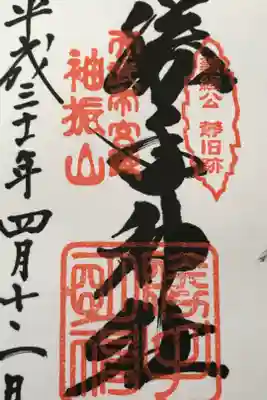 義経公 静旧跡
勝手神社
袖振山
平成三十年 四月十二日